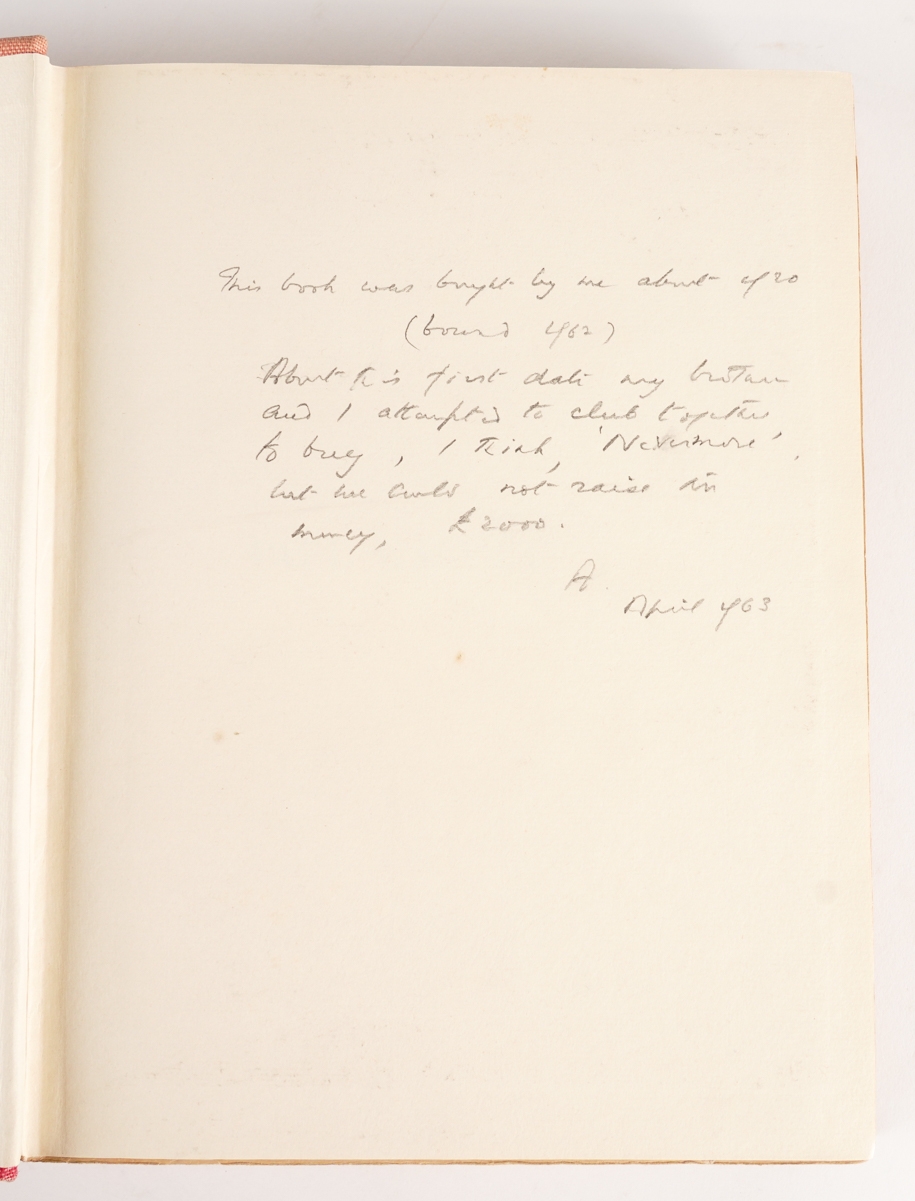 This book was bought by me about 1920
(bound 1962)
About this first date my brother
and I attempted to club together
to buy, I think, 'Nevermore',
but we could not raise the
money, £2000.
A.
April 1963